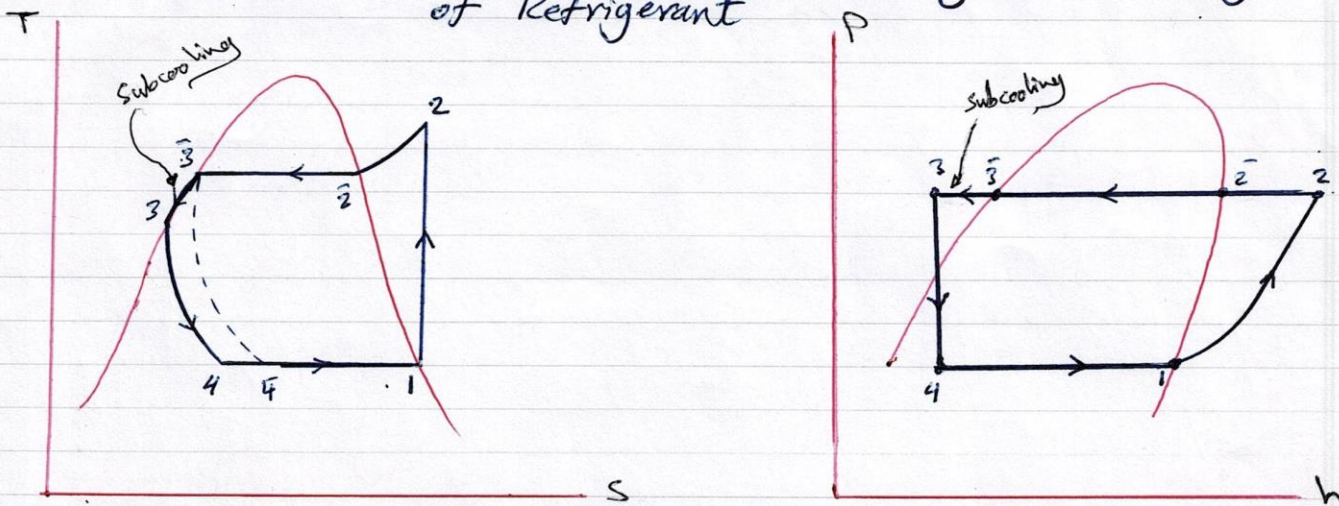 of Refrigerant
T
subcooling
2
3̄
2̄
3
4
4̄
1
S
P
subcooling
3
3̄
2̄
2
4
1
h